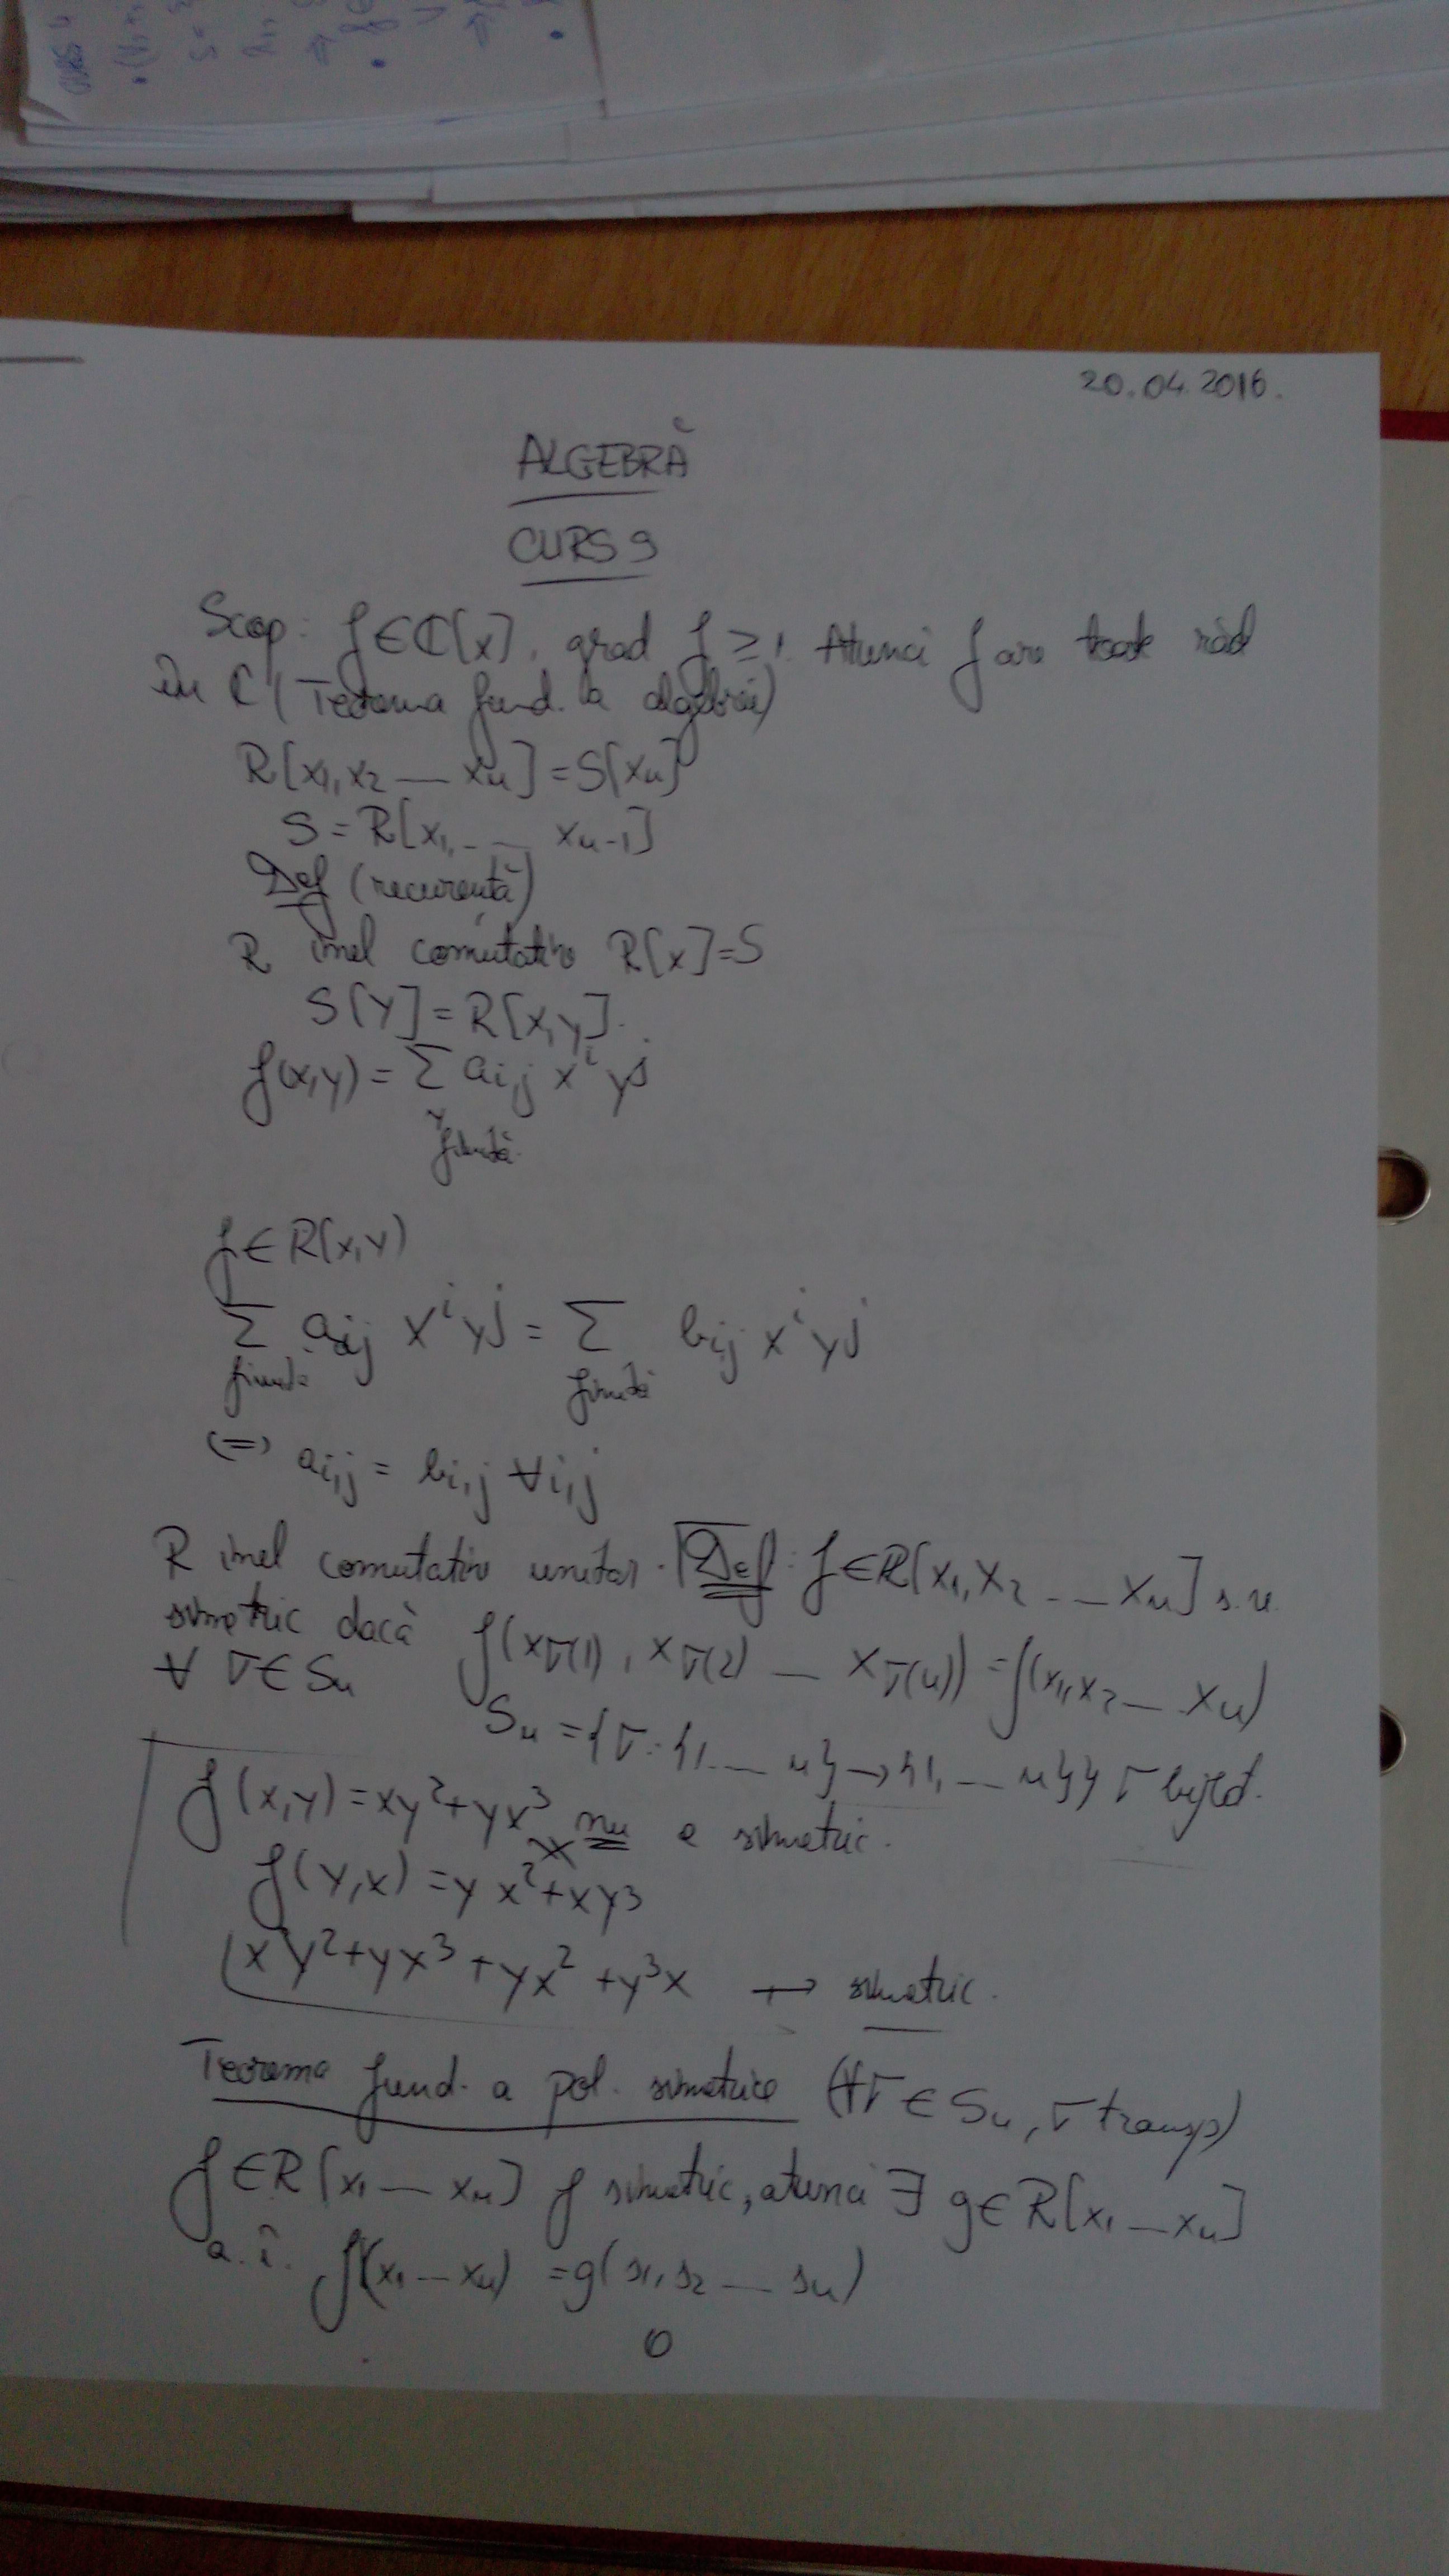 CURS
20.04.2016.
ALGEBRĂ
CURS 9
Scop: f∈ℂ[x], grad f ≥ 1. Atunci f are toate răd
în ℂ (Teorema fund. a algebrei)
R[x1, x2 — xn] = S[xn]
S = R[x1, - — xn-1]
Def (recurență)
R inel comutativ R[x] = S
S[Y] = R[x,y].
f(x,y) = Σ ai,j x^i y^j
finită
f ∈ R(x,y)
Σ aij x^i y^j = Σ bi,j x^i y^j
finită finită
(=) ai,j = bi,j ∀i,j
R inel comutativ unitar. Def: f∈R[x1, x2 - — xn] s.n.
simetric dacă f(xσ(1), xσ(2) — xσ(n)) = f(x1, x2 — xn)
∀ σ∈Sn
Sn = {σ: {1, — n} → {1, — n}} σ biject.
f(x,y) = xy²+yx³ nu e simetric.
f(y,x) = yx²+xy³
xy²+yx³+yx²+y³x → simetric.
Teorema fund. a pol. simetrice (∀σ∈Sn, σ transp)
f∈R[x1 — xn] f simetric, atunci ∃ g∈R[x1 — xn]
a.î. f(x1 — xn) = g(s1, s2 — sn)
0